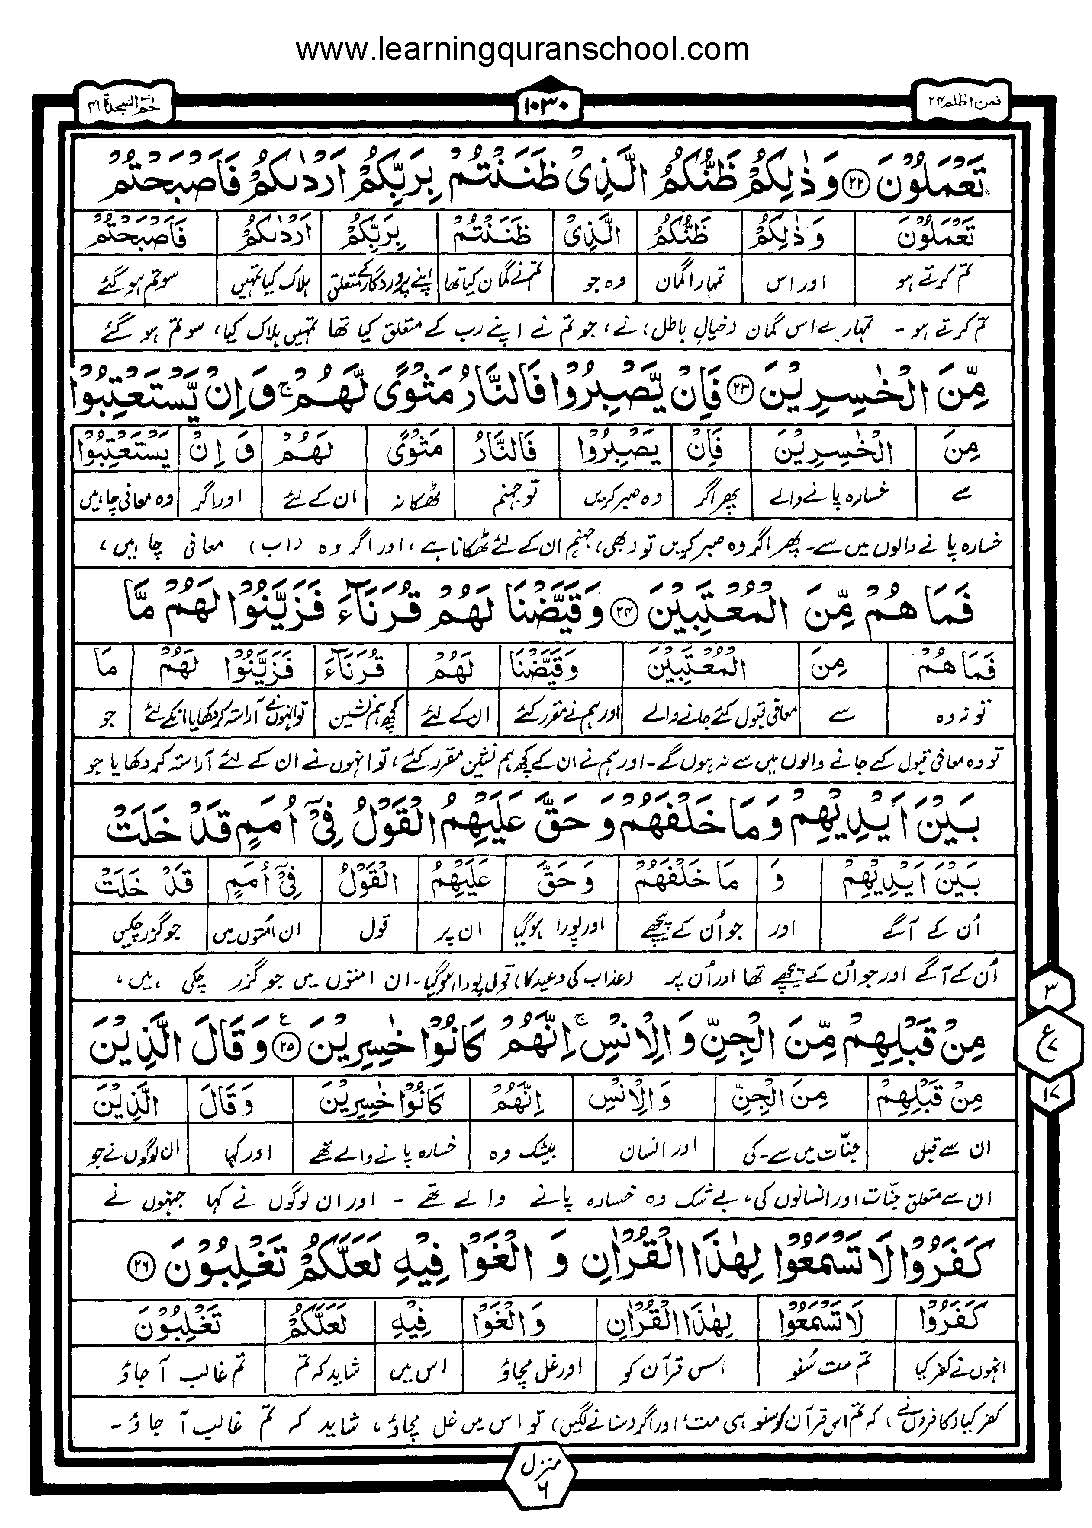 www.learningquranschool.com
حٰمٓ السجدۃ ۴۱
۱۰۳۰
فمن اظلم ۲۴
تَعْمَلُوْنَ ﴿۲۲﴾ وَذٰلِكُمْ ظَنُّكُمُ الَّذِیْ ظَنَنْتُمْ بِرَبِّكُمْ اَرْدٰىكُمْ فَاَصْبَحْتُمْ
تَعْمَلُوْنَ وَذٰلِكُمْ ظَنُّكُمُ الَّذِیْ ظَنَنْتُمْ بِرَبِّكُمْ اَرْدٰىكُمْ فَاَصْبَحْتُمْ
تم کرتے ہو اور اس تمہارا گمان وہ جو تم نے گمان کیا تھا اپنے پروردگار کے متعلق ہلاک کیا تمہیں سو تم ہو گئے
تم کرتے ہو - تمہارے اس گمان (خیالِ باطل) نے، جو تم نے اپنے رب کے متعلق کیا تھا تمہیں ہلاک کیا، سو تم ہو گئے
مِّنَ الْخٰسِرِیْنَ ﴿۲۳﴾ فَاِنْ یَّصْبِرُوْا فَالنَّارُ مَثْوًی لَّهُمْ ۚ وَاِنْ یَّسْتَعْتِبُوْا
مِنَ الْخٰسِرِیْنَ فَاِنْ یَصْبِرُوْا فَالنَّارُ مَثْوًی لَهُمْ وَاِنْ یَسْتَعْتِبُوْا
سے خسارہ پانے والے پھر اگر وہ صبر کریں تو جہنم ٹھکانہ ان کے لئے اور اگر وہ معافی چاہیں
خسارہ پانے والوں میں سے - پھر اگر وہ صبر کریں تو (بھی) جہنم ان کے لئے ٹھکانا ہے، اور اگر وہ (اب) معافی چاہیں،
فَمَا هُمْ مِّنَ الْمُعْتَبِیْنَ ﴿۲۴﴾ وَقَیَّضْنَا لَهُمْ قُرَنَآءَ فَزَیَّنُوْا لَهُمْ مَّا
فَمَا هُمْ مِنَ الْمُعْتَبِیْنَ وَقَیَّضْنَا لَهُمْ قُرَنَآءَ فَزَیَّنُوْا لَهُمْ مَا
تو نہ وہ سے معافی قبول کئے جانے والے اور ہم نے مقرر کئے ان کے لئے کچھ ہم نشین تو انہوں نے آراستہ کر دکھایا انکے لئے جو
تو وہ معافی قبول کئے جانے والوں میں سے نہ ہوں گے - اور ہم نے ان کے کچھ ہم نشین مقرر کئے، تو انہوں نے ان کے لئے آراستہ کر دکھایا جو
بَیْنَ اَیْدِیْهِمْ وَمَا خَلْفَهُمْ وَحَقَّ عَلَیْهِمُ الْقَوْلُ فِیْۤ اُمَمٍ قَدْ خَلَتْ
بَیْنَ اَیْدِیْهِمْ وَ مَا خَلْفَهُمْ وَحَقَّ عَلَیْهِمُ الْقَوْلُ فِیْۤ اُمَمٍ قَدْ خَلَتْ
اُن کے آگے اور جو اُن کے پیچھے اور پورا ہو گیا ان پر قول ان امتوں میں جو گزر چکیں
اُن کے آگے اور جو اُن کے پیچھے تھا اور اُن پر (عذاب کی وعید کا) قول پورا ہو گیا - ان امتوں میں جو گزر چکی ہیں،
مِنْ قَبْلِهِمْ مِّنَ الْجِنِّ وَالْاِنْسِ ۚ اِنَّهُمْ كَانُوْا خٰسِرِیْنَ ﴿۲۵﴾ وَقَالَ الَّذِیْنَ
۳
ع
۷
۱۷
مِنْ قَبْلِهِمْ مِنَ الْجِنِّ وَالْاِنْسِ اِنَّهُمْ كَانُوْا خٰسِرِیْنَ وَقَالَ الَّذِیْنَ
ان سے قبل جنّات میں سے - کی اور انسان بیشک وہ خسارہ پانے والے تھے اور کہا ان لوگوں نے جو
ان سے متعلق جنّات اور انسانوں کی، بے شک وہ خسارہ پانے والے تھے - اور ان لوگوں نے کہا جنہوں نے
كَفَرُوْا لَا تَسْمَعُوْا لِهٰذَا الْقُرْاٰنِ وَ الْغَوْا فِیْهِ لَعَلَّكُمْ تَغْلِبُوْنَ ﴿۲۶﴾
كَفَرُوْا لَا تَسْمَعُوْا لِهٰذَا الْقُرْاٰنِ وَالْغَوْا فِیْهِ لَعَلَّكُمْ تَغْلِبُوْنَ
انہوں نے کفر کیا تم مت سُنو اس قرآن کو اور غل مچاؤ اس میں شاید کہ تم تم غالب آ جاؤ
کفر کیا (کافروں نے)، کہ تم اس قرآن کو سنو ہی مت! اور اگر (سنانے لگیں) تو اس میں غل مچاؤ، شاید کہ تم غالب آ جاؤ -
منزل ۶